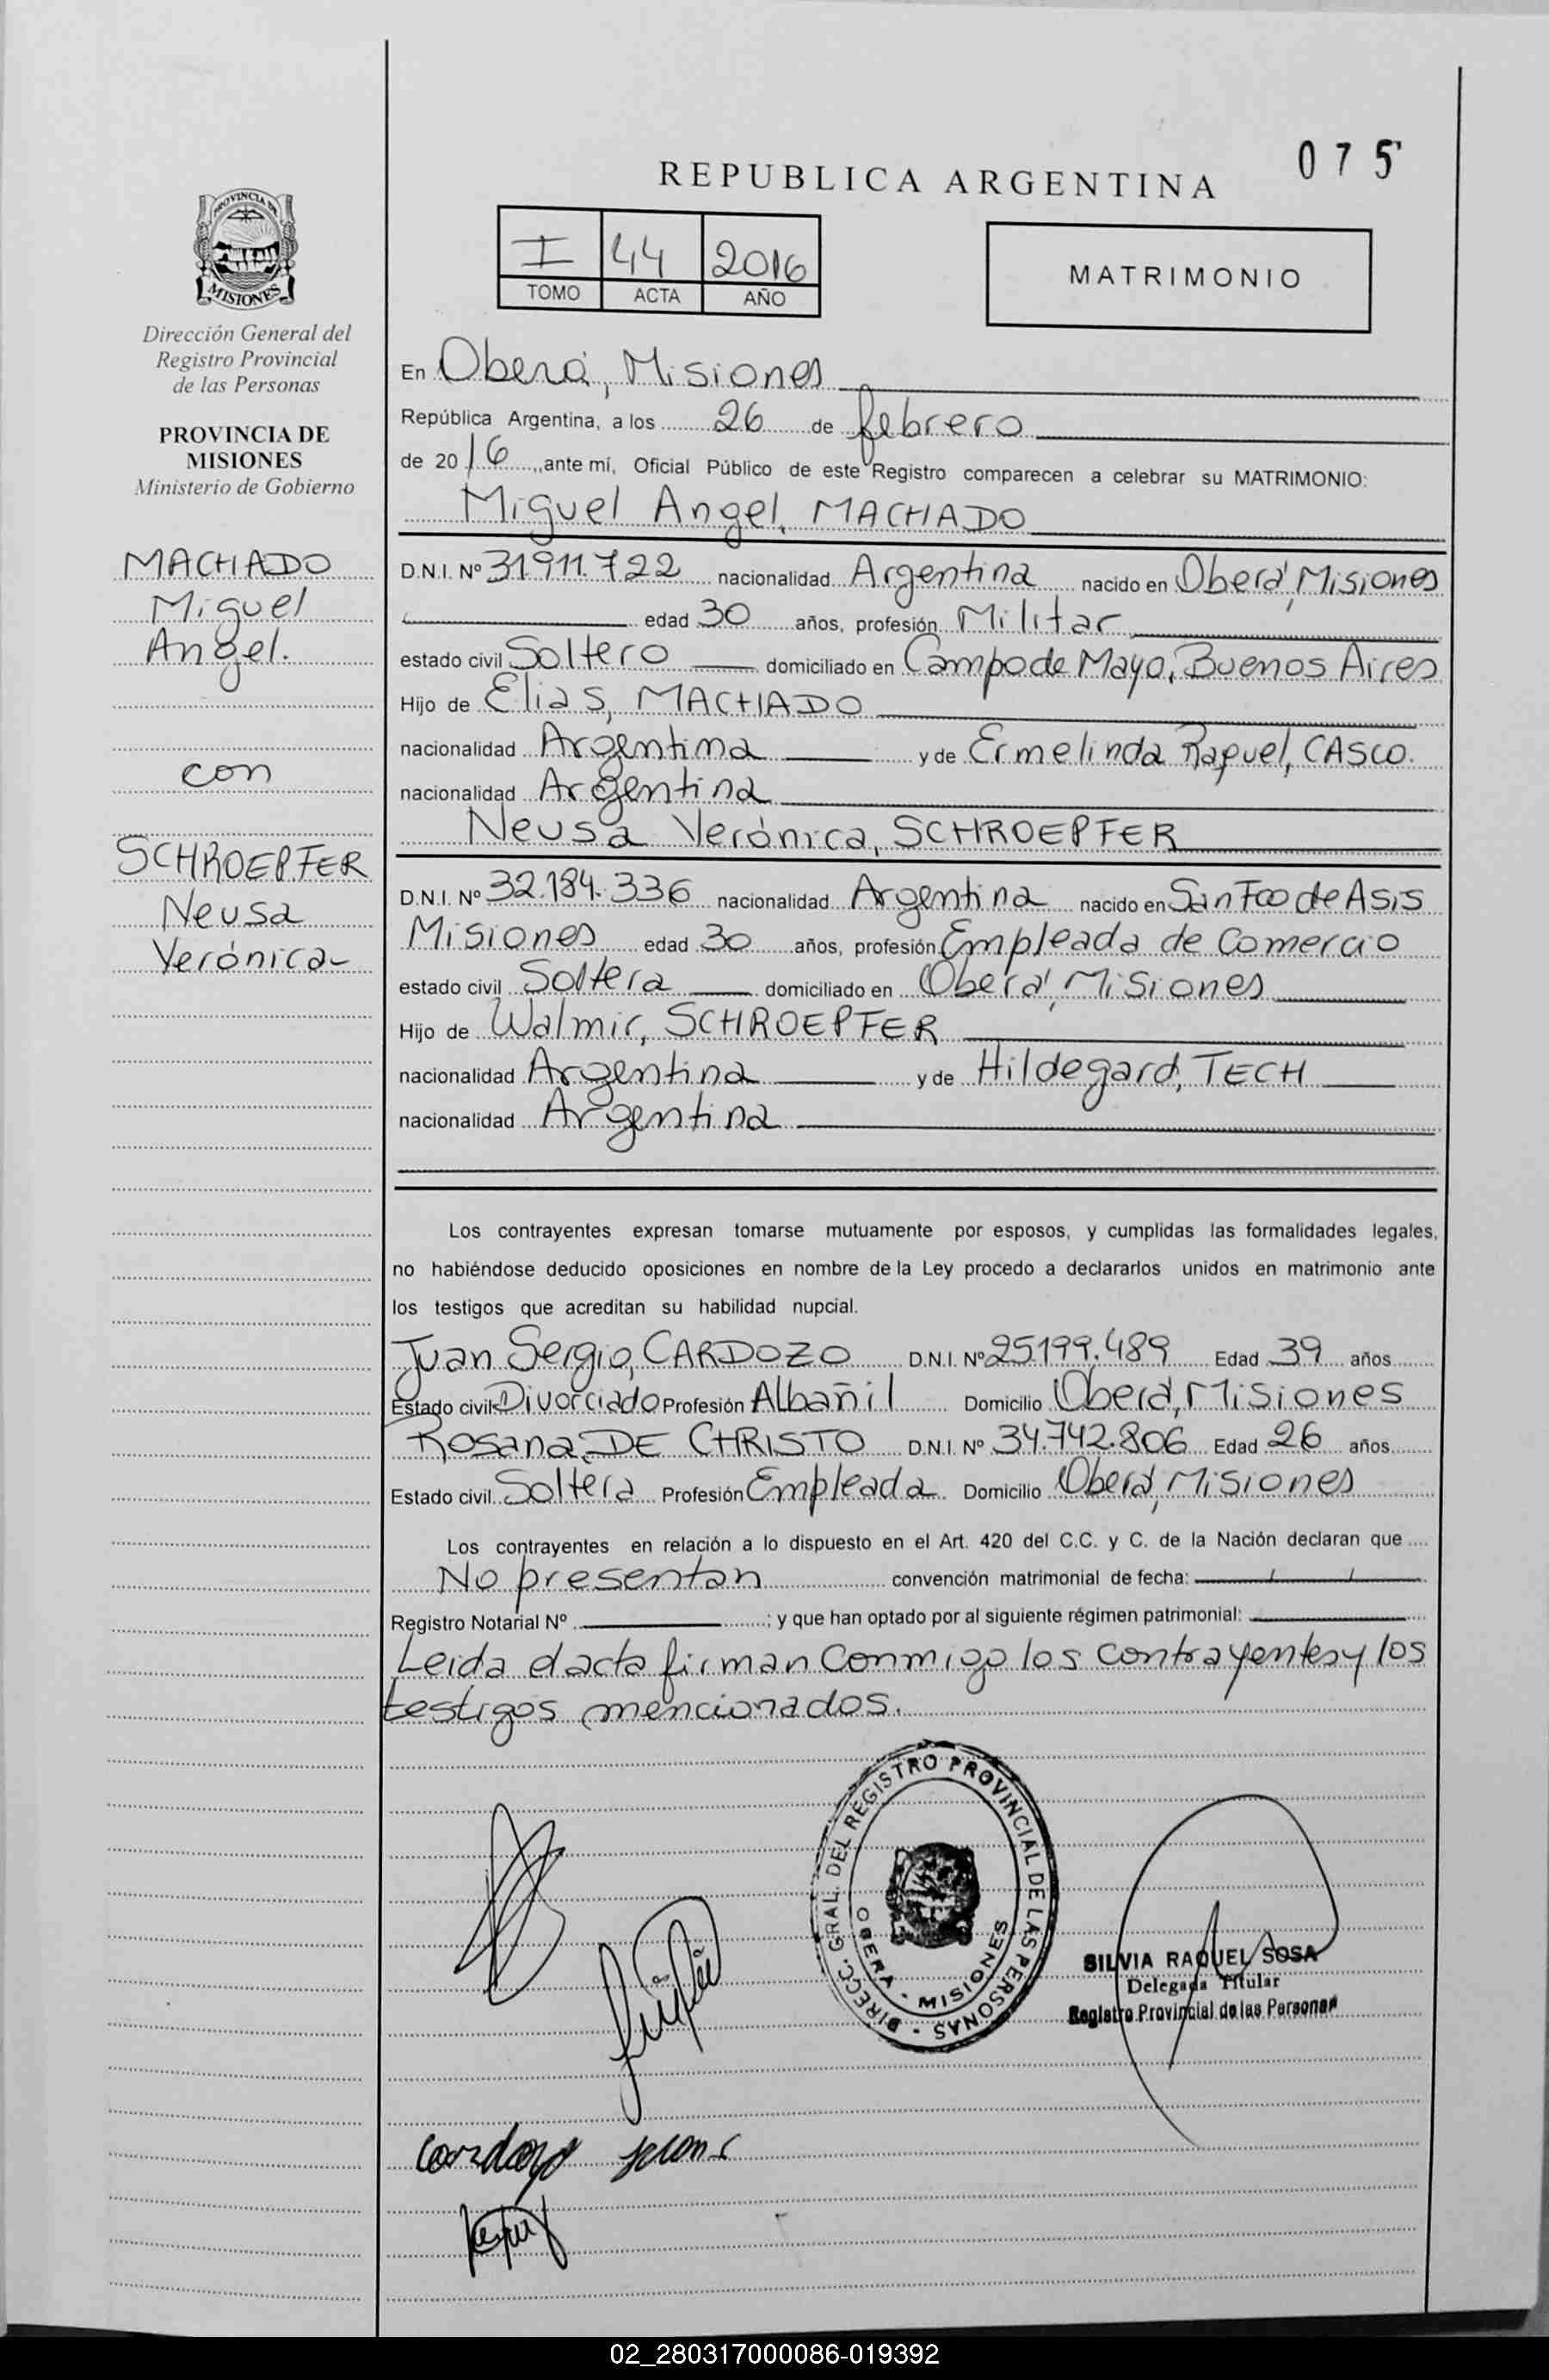 075
REPUBLICA ARGENTINA
I 44 2016
TOMO ACTA AÑO
MATRIMONIO
PROVINCIA DE
MISIONES
Dirección General del
Registro Provincial
de las Personas
PROVINCIA DE
MISIONES
Ministerio de Gobierno
MACHADO
Miguel
Angel.
con
SCHROEPFER
Neusa
Verónica-
En Oberá, Misiones
República Argentina, a los 26 de febrero
de 2016, ante mí, Oficial Público de este Registro comparecen a celebrar su MATRIMONIO:
Miguel Angel, MACHADO
D.N.I. Nº 31911.722 nacionalidad Argentina nacido en Oberá, Misiones
edad 30 años, profesión Militar
estado civil Soltero domiciliado en Campo de Mayo, Buenos Aires
Hijo de Elias, MACHADO
nacionalidad Argentina y de Ermelinda Raquel, CASCO.
nacionalidad Argentina
Neusa Verónica, SCHROEPFER
D.N.I. Nº 32.184.336 nacionalidad Argentina nacido en San Fco de Asis
Misiones edad 30 años, profesión Empleada de Comercio
estado civil Soltera domiciliado en Oberá, Misiones
Hijo de Walmir, SCHROEPFER
nacionalidad Argentina y de Hildegard, TECH
nacionalidad Argentina
Los contrayentes expresan tomarse mutuamente por esposos, y cumplidas las formalidades legales,
no habiéndose deducido oposiciones en nombre de la Ley procedo a declararlos unidos en matrimonio ante
los testigos que acreditan su habilidad nupcial.
Juan Sergio, CARDOZO D.N.I. Nº 25199.489 Edad 39 años
Estado civil Divorciado Profesión Albañil Domicilio Oberá, Misiones
Rosana, DE CHRISTO D.N.I. Nº 34.742.806 Edad 26 años
Estado civil Soltera Profesión Empleada Domicilio Oberá, Misiones
Los contrayentes en relación a lo dispuesto en el Art. 420 del C.C. y C. de la Nación declaran que
No presentan convención matrimonial de fecha: / /
Registro Notarial Nº ; y que han optado por al siguiente régimen patrimonial:
Leida el acta firman conmigo los contrayentes y los
testigos mencionados.
DIRECC. GRAL. DEL REGISTRO PROVINCIAL DE LAS PERSONAS
OBERA - MISIONES
SILVIA RAQUEL SOSA
Delegada Titular
Registro Provincial de las Personas
02_280317000086-019392